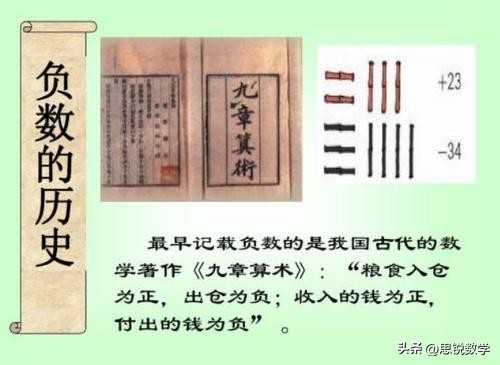 负数的历史
九章算術
+23
-34
最早记载负数的是我国古代的数
学著作《九章算术》：“粮食入仓
为正，出仓为负；收入的钱为正，
付出的钱为负”。
头条 @思锐数学